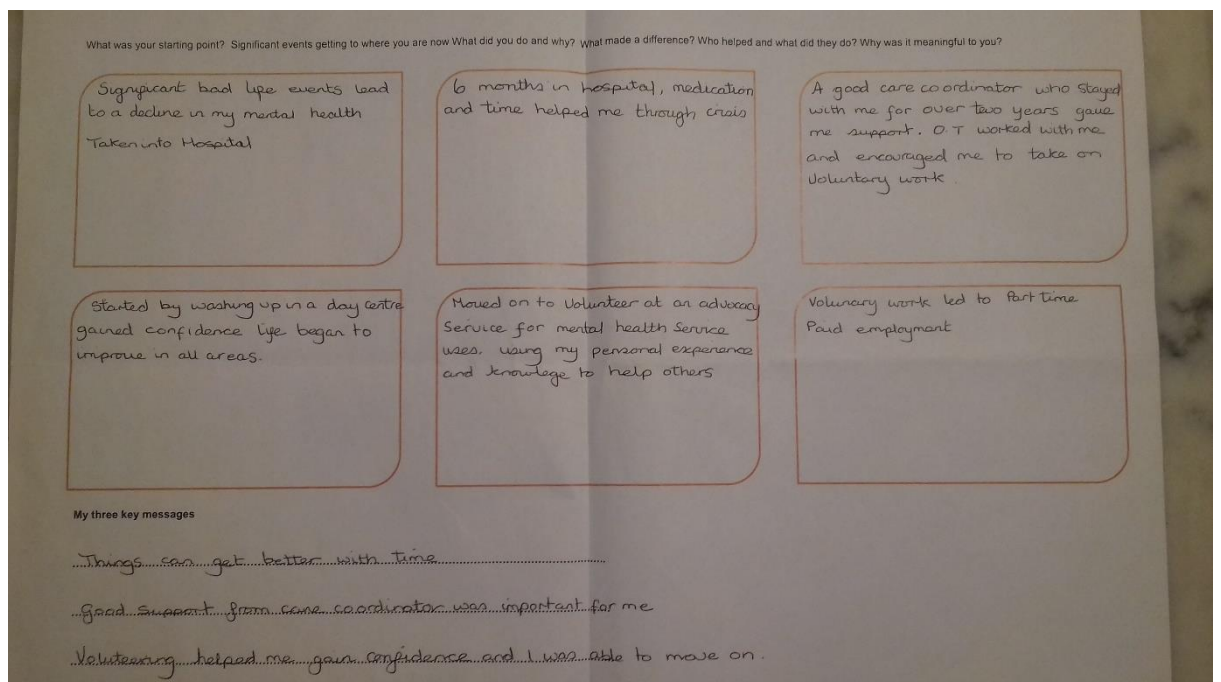 What was your starting point? Significant events getting to where you are now What did you do and why? What made a difference? Who helped and what did they do? Why was it meaningful to you?
Significant bad life events lead
to a decline in my mental health
Taken into Hospital
6 months in hospital, medication
and time helped me through crisis
A good care coordinator who stayed
with me for over two years gave
me support. O.T worked with me
and encouraged me to take on
Voluntary work.
Started by washing up in a day centre
gained confidence life began to
improve in all areas.
Moved on to Volunteer at an advocacy
Service for mental health Service
uses, using my personal experience
and knowlege to help others
Voluncary work led to Part time
Paid employment
My three key messages
Things can get better with time
Good support from care coordinator was important for me
Voluteering helped me gain confidence and I was able to move on.